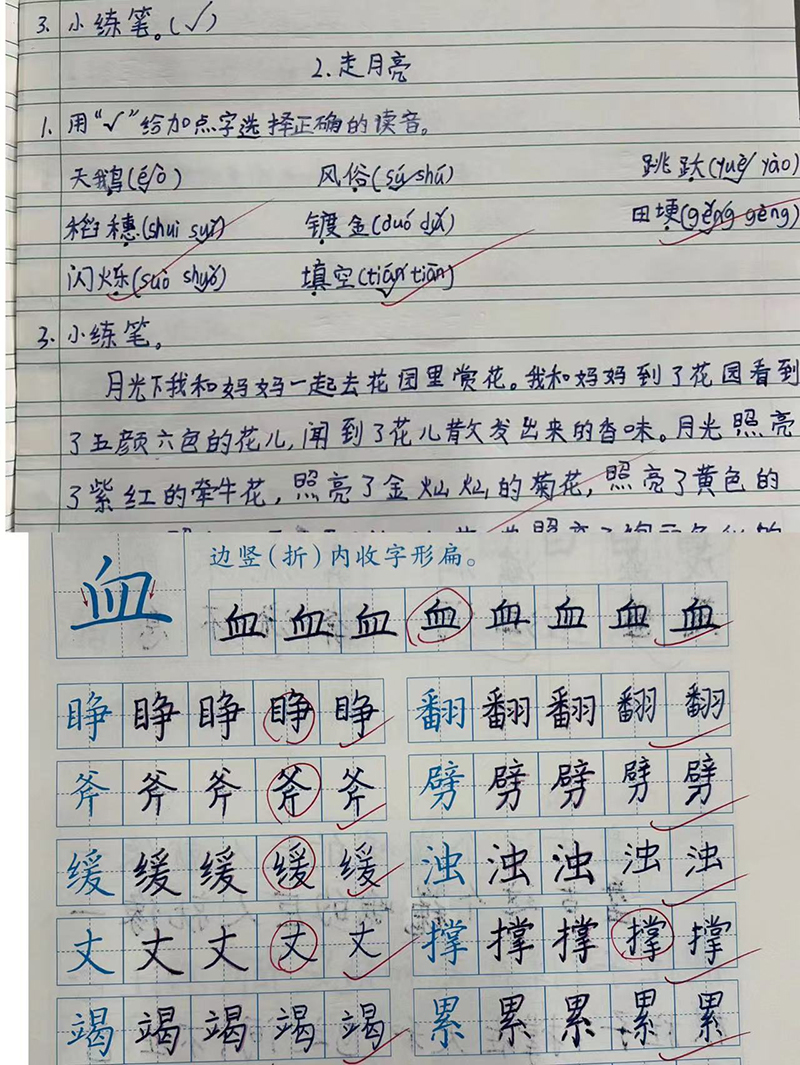 3. 小练笔。(√)
2.走月亮
1. 用“√”给加点字选择正确的读音。
天鹅(é ò) 风俗(sú shú) 跳跃(yuè yào)
稻穗(shuì suì) 镀金(duó dù) 田埂(gěng gèng)
闪烁(suò shuò) 填空(tián tiān)
3. 小练笔。
月光下我和妈妈一起去花园里赏花。我和妈妈到了花园看到
了五颜六色的花儿,闻到了花儿散发出来的香味。月光照亮
了紫红的牵牛花,照亮了金灿灿的菊花,照亮了黄色的
血 边竖(折)内收字形扁。
血 血 血 血 血 血 血 血
睁 睁 睁 睁 睁 翻 翻 翻 翻 翻
斧 斧 斧 斧 斧 劈 劈 劈 劈 劈
缓 缓 缓 缓 缓 浊 浊 浊 浊 浊
丈 丈 丈 丈 丈 撑 撑 撑 撑 撑
竭 竭 竭 竭 竭 累 累 累 累 累